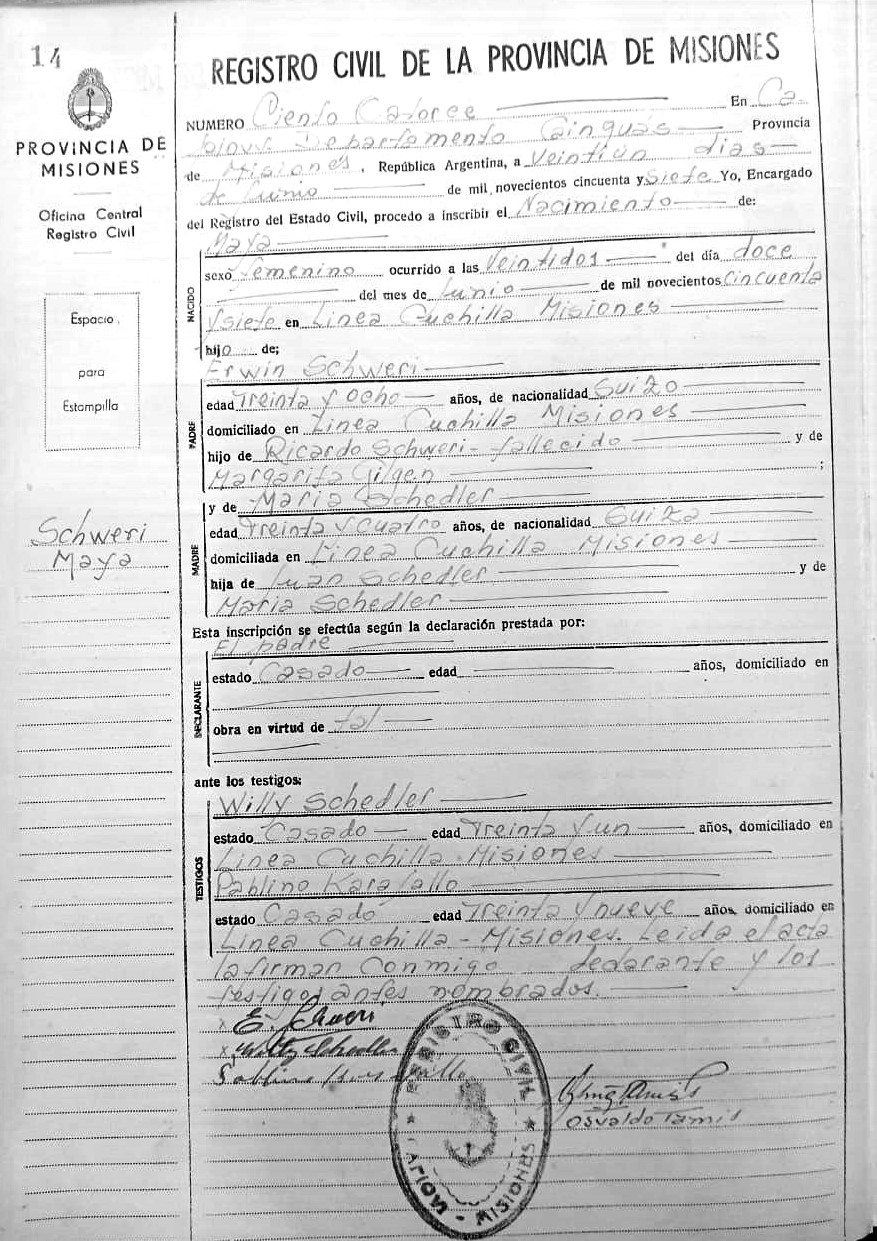 14
PROVINCIA DE
MISIONES
Oficina Central
Registro Civil
Espacio
para
Estampilla
Schweri
Maya
REGISTRO CIVIL DE LA PROVINCIA DE MISIONES
NUMERO Ciento Catorce En Ca
Departamento Cainguás Provincia
de Misiones, República Argentina, a Veintiún dias
de Junio de mil, novecientos cincuenta y Siete Yo, Encargado
del Registro del Estado Civil, procedo a inscribir el Nacimiento de:
NACIDO
Maya
sexo femenino ocurrido a las Veintidos del día doce
del mes de Junio de mil novecientos Cincuenta
y siete en Linea Cuchilla Misiones
hijo de;
PADRE
Erwin Schweri
edad Treinta y Ocho años, de nacionalidad Suizo
domiciliado en Linea Cuchilla Misiones
hijo de Ricardo Schweri - fallecido y de
Margarita Gilgen ;
MADRE
y de Maria Schedler
edad Treinta y Cuatro años, de nacionalidad Suiza
domiciliada en Linea Cuchilla Misiones
hija de Juan Schedler y de
Maria Schedler
Esta inscripción se efectúa según la declaración prestada por:
DECLARANTE
El padre
estado Casado edad años, domiciliado en
obra en virtud de tal
ante los testigos:
TESTIGOS
Willy Schedler
estado Casado edad Treinta y un años, domiciliado en
Linea Cuchilla Misiones
Pablino
estado Casado edad Treinta y nueve años, domiciliado en
Linea Cuchilla - Misiones. Leida el acta
la firman Conmigo declarante y los
testigos antes nombrados.
x E. Schweri
x Willy Schedler
Osvaldo Tamis
REGISTRO CIVIL
MISIONES